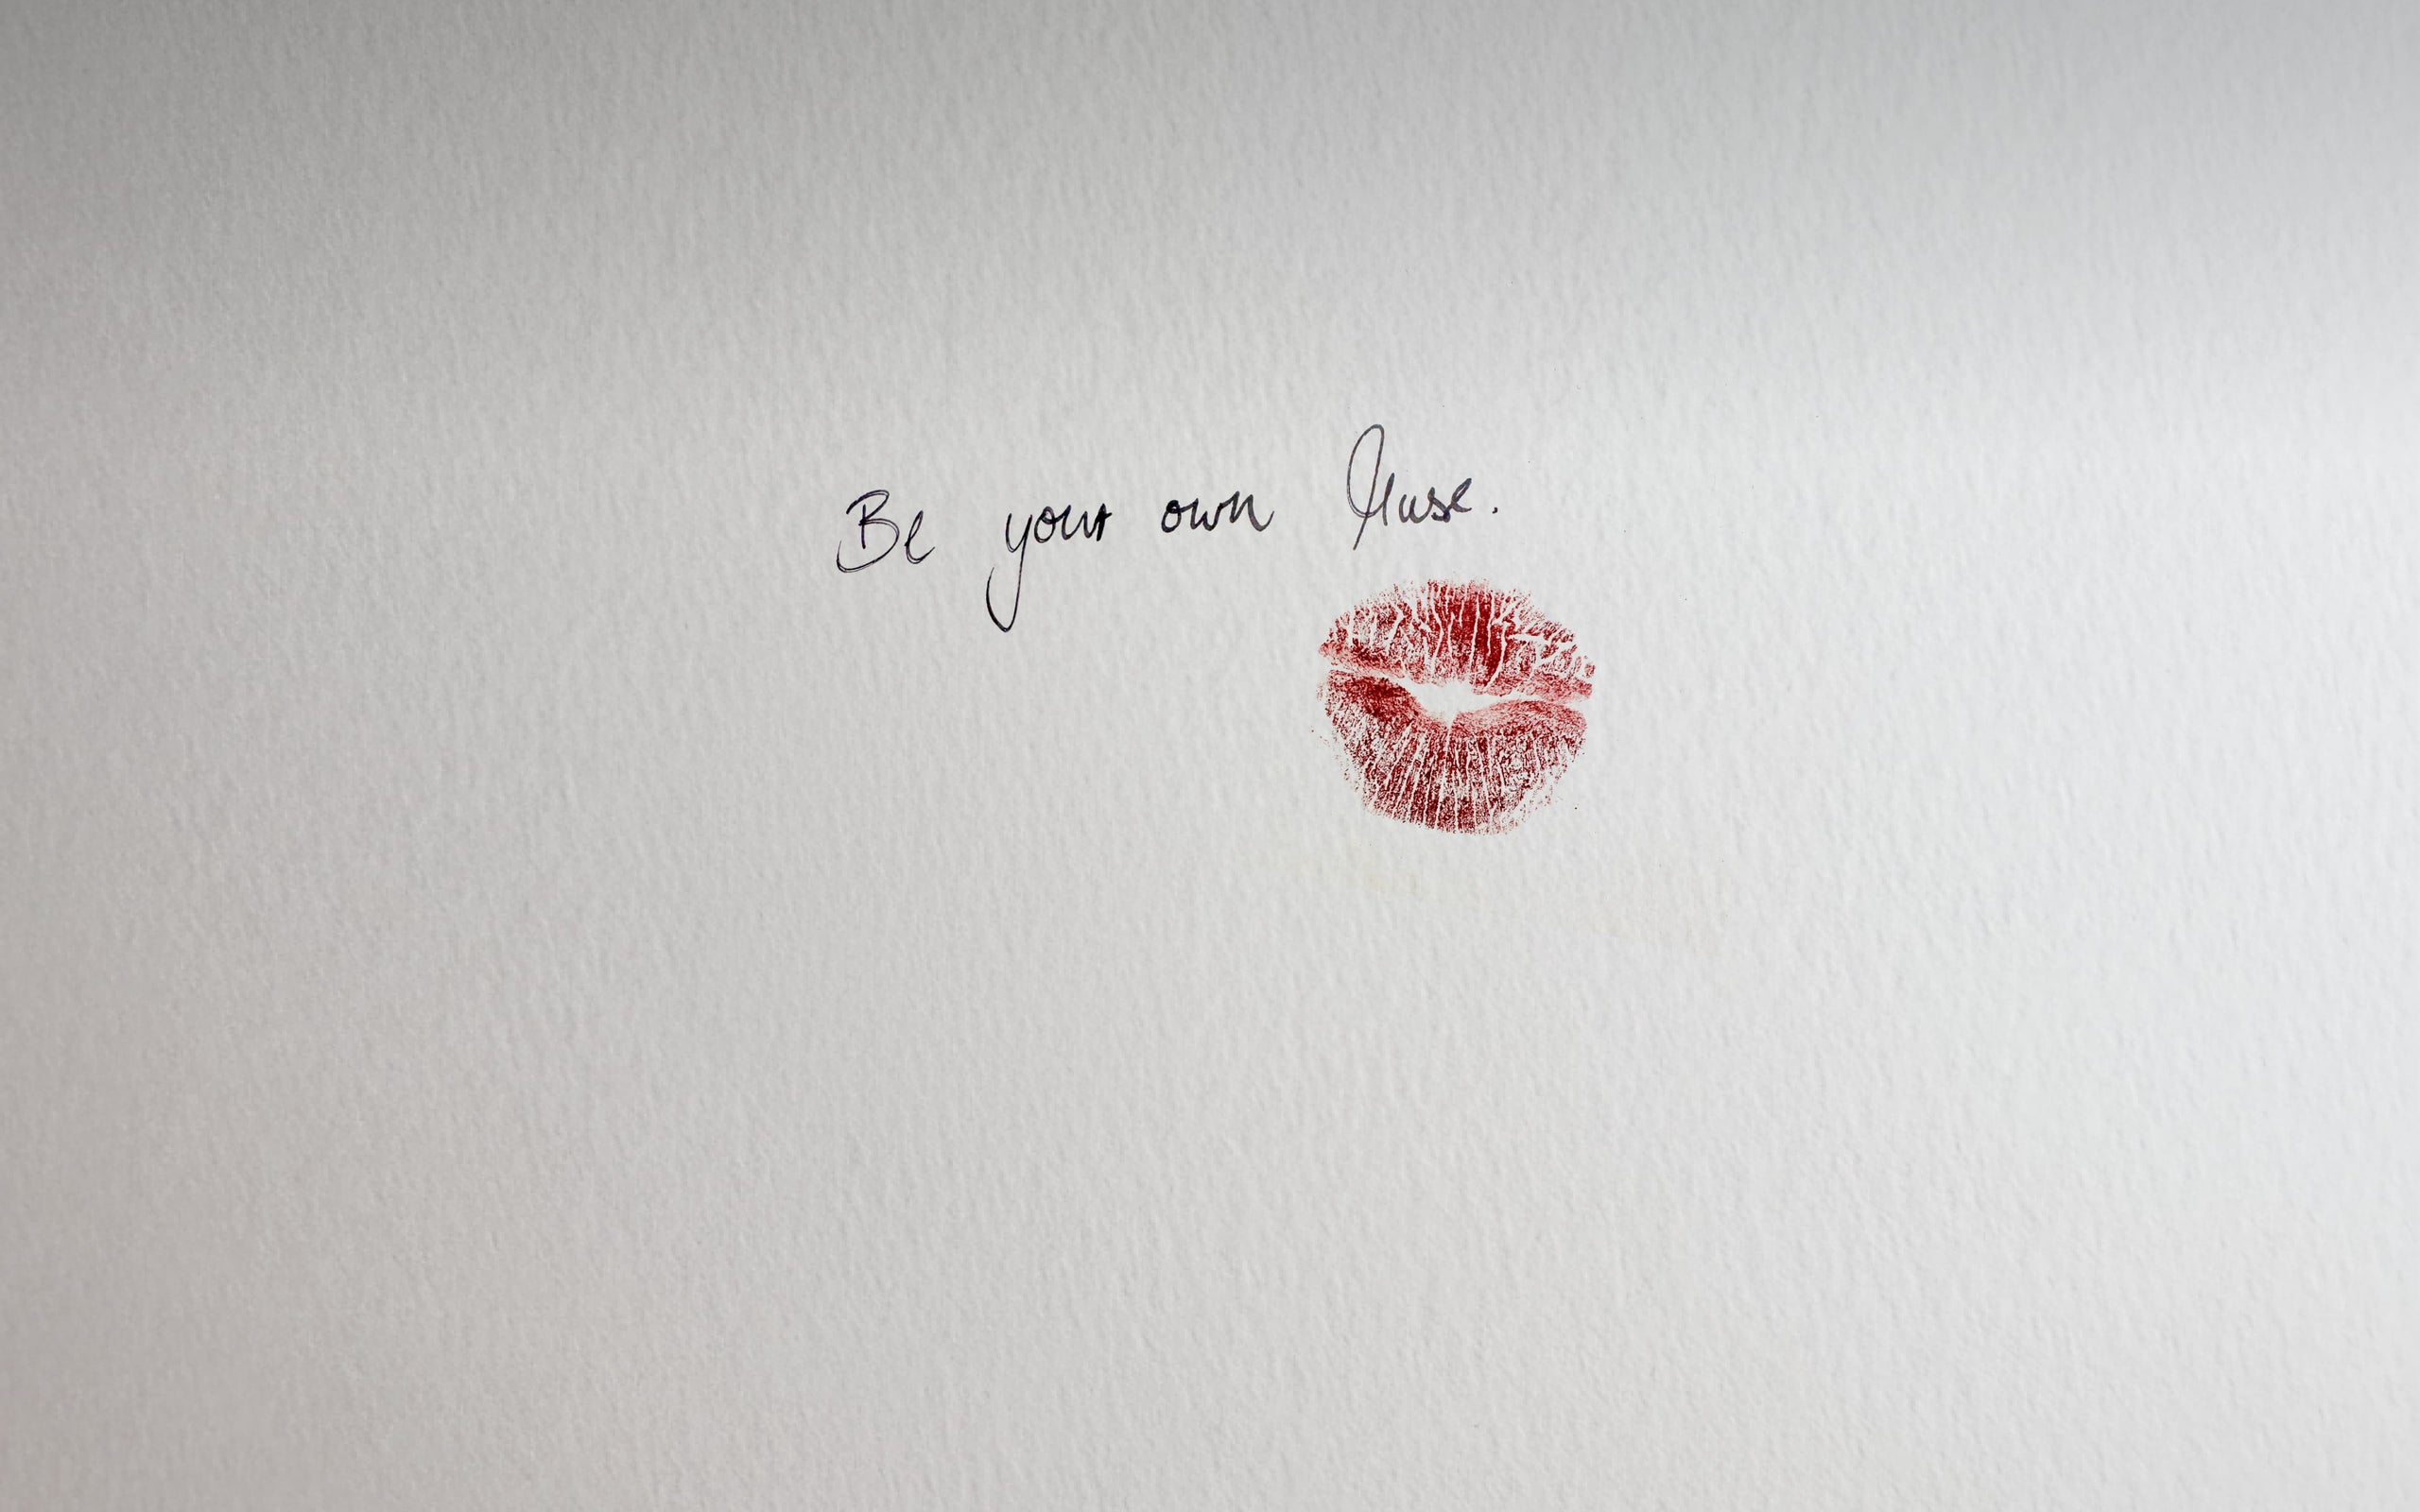 Be your own Muse.